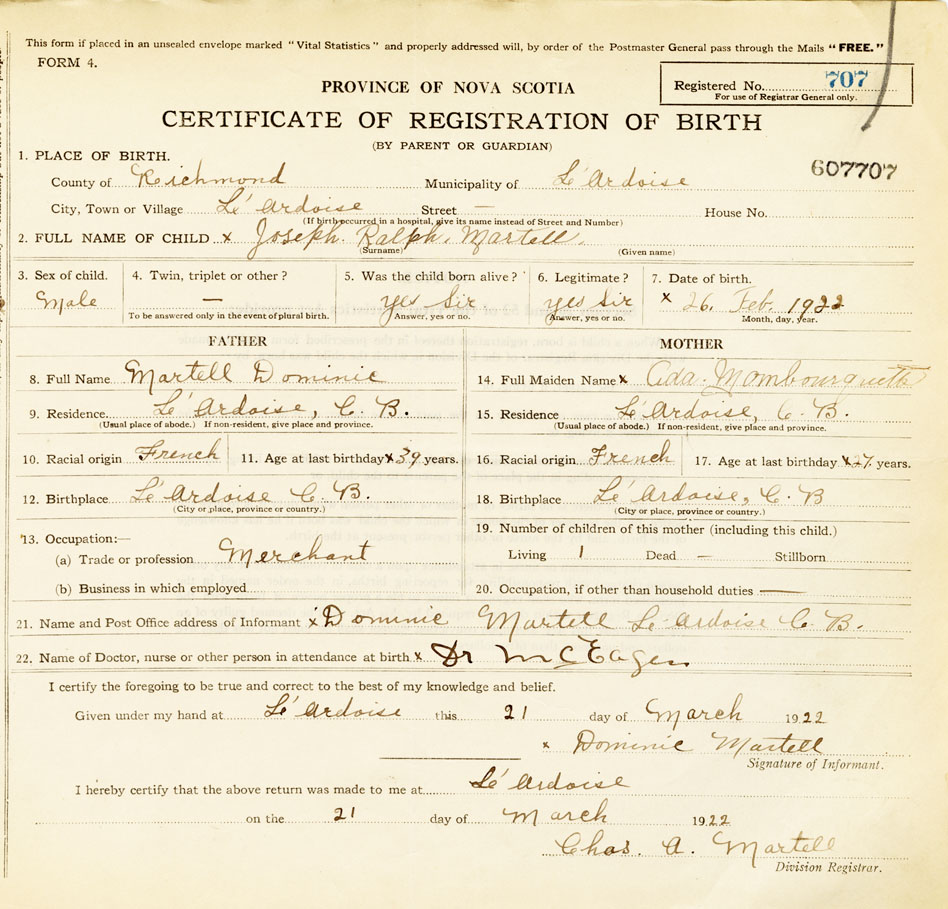 This form if placed in an unsealed envelope marked "Vital Statistics" and properly addressed will, by order of the Postmaster General pass through the Mails "FREE."
FORM 4.
Registered No. 707
For use of Registrar General only.
PROVINCE OF NOVA SCOTIA
CERTIFICATE OF REGISTRATION OF BIRTH
(BY PARENT OR GUARDIAN)
607707
1. PLACE OF BIRTH.
County of Richmond Municipality of Lé Ardoise
City, Town or Village Lé Ardoise Street — House No.
(If birth occurred in a hospital, give its name instead of Street and Number)
2. FULL NAME OF CHILD x Joseph Ralph Martell
(Surname) (Given name)
3. Sex of child. 4. Twin, triplet or other? 5. Was the child born alive? 6. Legitimate? 7. Date of birth.
Male — yes Sir yes Sir x 26. Feb. 1922
To be answered only in the event of plural birth. Answer, yes or no. Answer, yes or no. Month, day, year.
FATHER MOTHER
8. Full Name Martell Dominic 14. Full Maiden Name x Ada Mombourquette
9. Residence Lé Ardoise, C. B. 15. Residence Lé Ardoise, C. B.
(Usual place of abode.) If non-resident, give place and province. (Usual place of abode.) If non-resident, give place and province.
10. Racial origin French 11. Age at last birthday x 39 years. 16. Racial origin French 17. Age at last birthday x 27 years.
12. Birthplace Lé Ardoise C. B. 18. Birthplace Lé Ardoise, C. B
(City or place, province or country.) (City or place, province or country.)
13. Occupation:— 19. Number of children of this mother (including this child.)
(a) Trade or profession Merchant Living 1 Dead — Stillborn
(b) Business in which employed 20. Occupation, if other than household duties —
21. Name and Post Office address of Informant x Dominic Martell Lé Ardoise C. B.
22. Name of Doctor, nurse or other person in attendance at birth x Dr McEagen
I certify the foregoing to be true and correct to the best of my knowledge and belief.
Given under my hand at Lé Ardoise this 21 day of March 1922
x Dominic Martell
Signature of Informant.
I hereby certify that the above return was made to me at Lé Ardoise
on the 21 day of March 1922
Chas. A. Martell
Division Registrar.